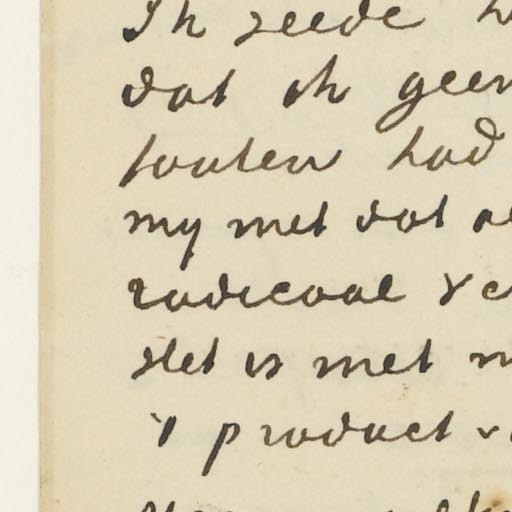 Ik zeide
dat ik geen
fouten had
my met dat
radicaal
Het is met
't product